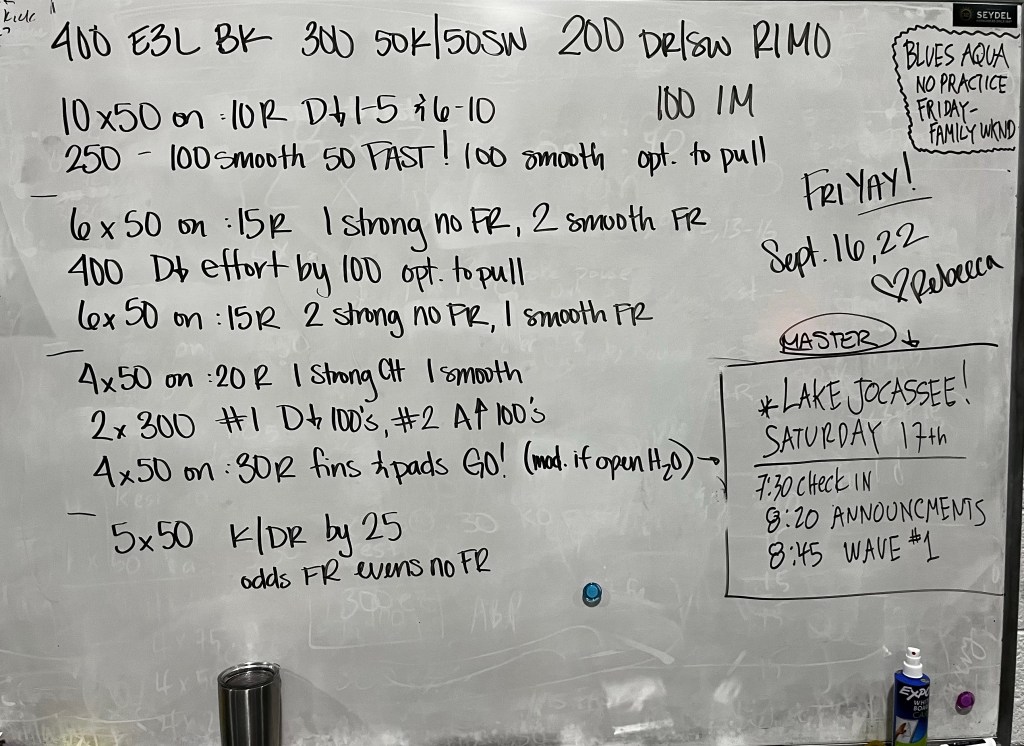 Kick
SEYDEL
400 E3L BK 300 50K/50SW 200 DR/SW RIMO
100 IM
BLUES AQUA
NO PRACTICE
FRIDAY-
FAMILY WKND
10x50 on :10R D↓ 1-5 & 6-10
250 - 100 smooth 50 FAST! 100 smooth opt. to pull
FRIYAY!
Sept. 16, 22
♡Rebecca
6x50 on :15R 1 strong no FR, 2 smooth FR
400 D↓ effort by 100 opt. to pull
6x50 on :15R 2 strong no FR, 1 smooth FR
4x50 on :20R 1 Strong CH 1 smooth
2x300 #1 D↓ 100's, #2 A↑ 100's
4x50 on :30R fins & pads GO! (mod. if open H₂O) →
5x50 K/DR by 25
odds FR evens no FR
MASTER ↓
*LAKE JOCASSEE!
SATURDAY 17th
7:30 CHECK IN
8:20 ANNOUNCMENTS
8:45 WAVE #1
300
EXPO